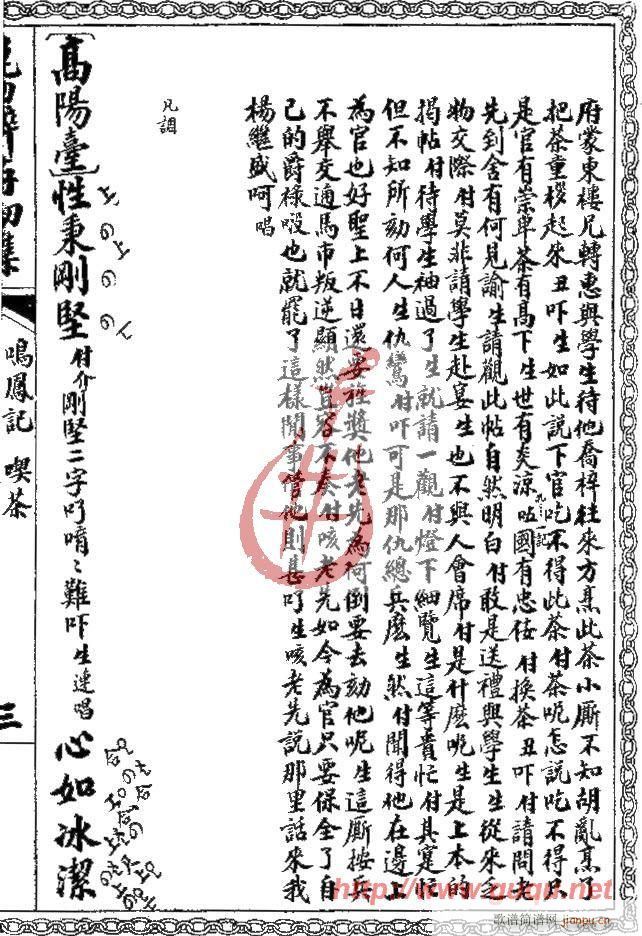 府蒙東樓兄轉惠與學生待他喬梓往來方烹此茶小厮不知胡亂烹了
把茶重拶起來丑吓生如此說下官吃不得此茶付茶呢怎說吃不得只
是官有崇卑茶有高下生世有炎涼國有忠佞付換茶丑吓付請問老
先到舍有何見諭生請觀此帖自然明白付敢是送禮與學生生從來乏
物交際付莫非請學生赴宴生也不與人會席付是什麽呢生是上本的
揭帖付待學生袖過了生就請一觀付燈下細覽生這等貴忙付其寔忙
但不知所劾何人生仇鸞付吓可是那仇總兵麽生然付聞得他在邊上
為官也好聖上不日還要旌獎他老先為何倒要去劾他呢生這厮按兵
不舉交通馬市叛逆顯然豈容不奏付咳老先如今為官只要保全了自
己的爵祿吸也就罷了這樣閒事管他則甚吖生咳老先說那里話來我
楊繼盛呵唱
凡調
〔高陽臺〕性秉剛堅付介剛堅二字吖唷〻難吓生連唱心如冰潔
鳴鳳記 喫茶
三
http://www.guqu.net
歌谱简谱网 jianpu.cn